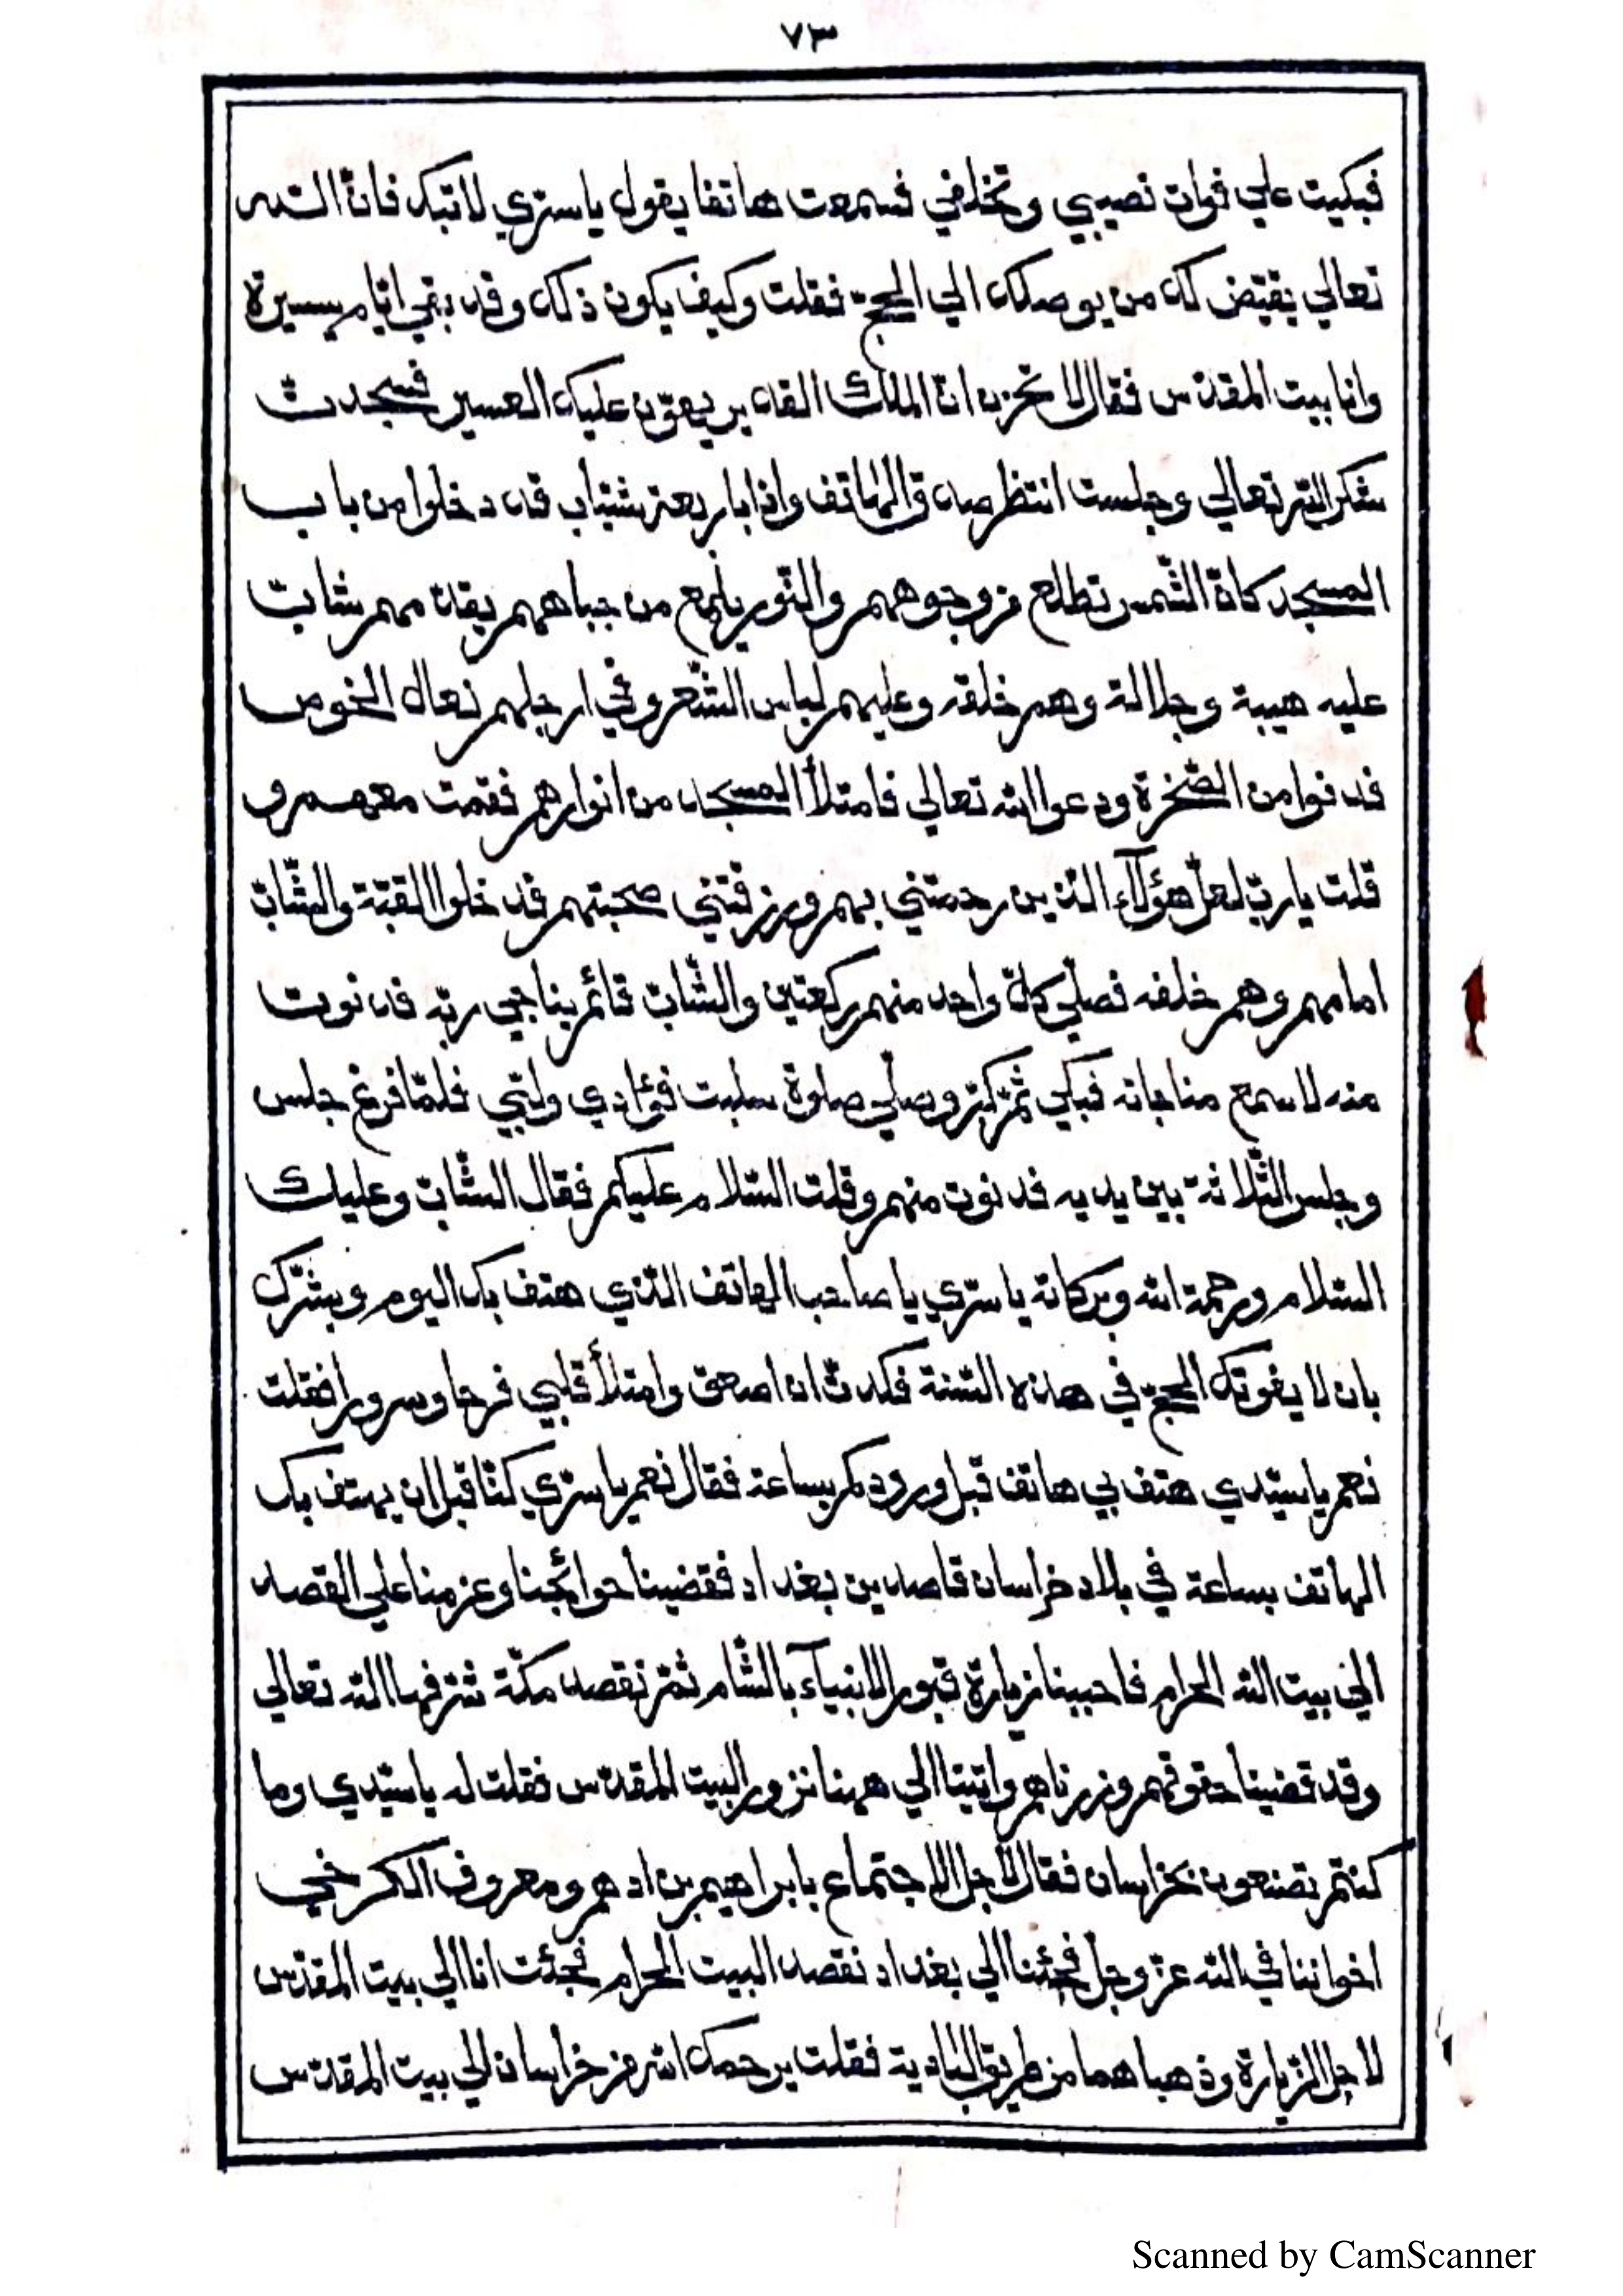 ٧٣
فبكيت علي فوات نصيبي وتخلفي فسمعت هاتفا يقول يا سري لا تبك فانّ اللّه
تعالي يقيّض لك من يوصلك الي الحجّ فقلت وكيف يكون ذلك وقد بقي ايّام يسيرة
وانا ببيت المقدّس فقال لا تحزن انّ الملك القدير يهوّن عليك العسير فسجدت
شكرا للّه تعالي وجلست انتظر صدق الهاتف واذا باربعة شبّاب قد دخلوا من باب
المسجد كانّ الشّمس تطلع من وجوههم والنّور يلمع من جباههم يقدمهم شابّ
عليه هيبة وجلالة وهم خلفه وعليهم لباس الشّعر وفي ارجلهم نعال الخوص
فدنوا من الصّخرة ودعوا اللّه تعالي فامتلأ المسجد من انوارهم فقمت معهم و
قلت يا ربّ لعلّ هؤلآء الذين رحمتني بهم ورزقتني صحبتهم فدخلوا القبّة والشّابّ
امامهم وهم خلفه فصلّي كلّ واحد منهم ركعتين والشّابّ قائم يناجي ربّه فدنوت
منه لاسمع مناجاته فبكي ثمّ كبّر وصلّي صلوة سلبت فؤادي ولبّي فلمّا فرغ جلس
وجلس الثّلاثة بين يديه فدنوت منهم وقلت السّلام عليكم فقال الشّابّ وعليك
السّلام ورحمة اللّه وبركاته يا سرّي يا صاحب الهاتف الّذي هتف بك اليوم وبشّرك
بان لا يفوتك الحجّ في هذه السّنة فكدتّ ان اصعق وامتلأ قلبي فرحا وسرورا فقلت
نعم يا سيّدي هتف بي هاتف قبل ورودكم بساعة فقال نعم يا سرّي كنّا قبل ان يهتف بك
الهاتف بساعة في بلاد خراسان قاصدين بغداد فقضينا حوائجنا وعزمنا علي القصد
الي بيت اللّه الحرام فاحببنا زيارة قبور الانبيآء بالشّام ثمّ نقصد مكّة شرّفها اللّه تعالي
وقد قضينا حقوقهم وزرناهم واتينا الي ههنا نزور البيت المقدّس فقلت له يا سيّدي وما
كنتم تصنعون بخراسان فقال لاجل الاجتماع بابراهيم بن ادهم ومعروف الكرخي
اخواننا في اللّه عزّ وجلّ فجئنا الي بغداد نقصد البيت الحرام فجئت انا الي بيت المقدّس
لاجل الزّيارة وذهبا هما من طريق البادية فقلت يرحمك اللّه من خراسان الي بيت المقدّس
Scanned by CamScanner